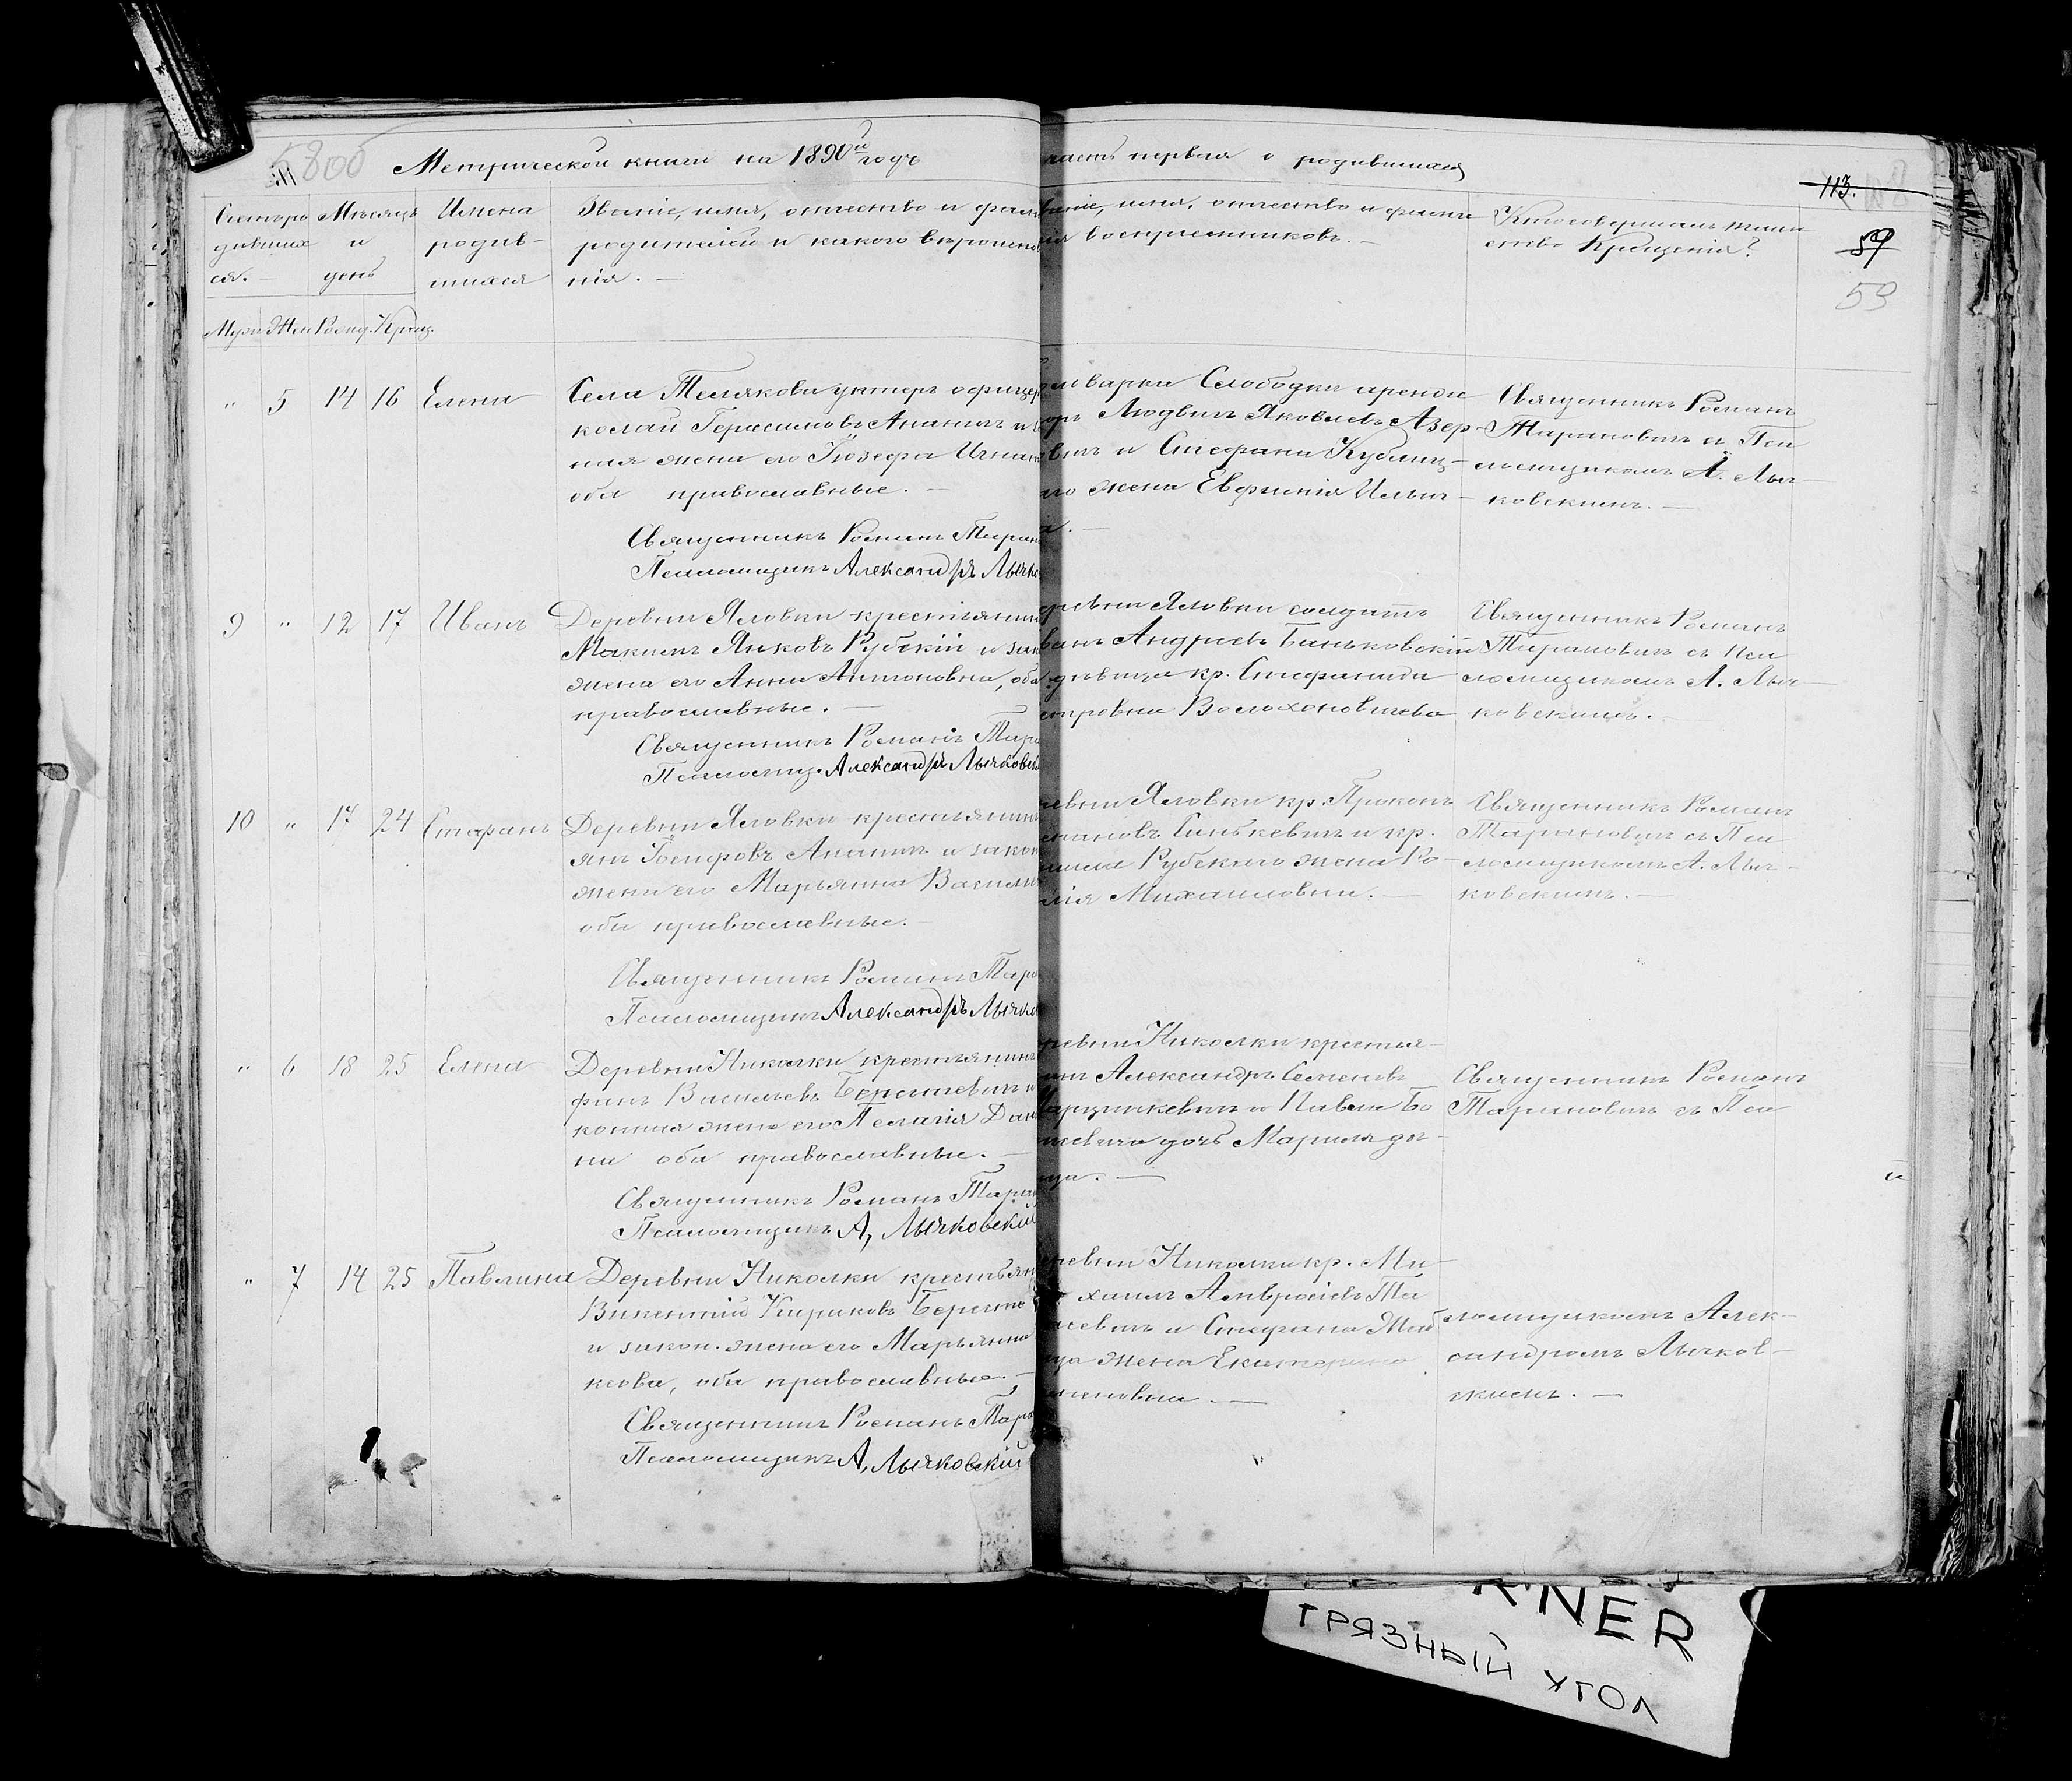 58об
Метрической книги на 1890й годъ
часть первая о родившихся
113.
59
59
Счетъ родившихся.
Мѣсяцъ и день
Имена родившихся
Званіе, имя, отчество и фами
родителей и какого вѣроисповѣ
нія. —
званіе, имя, отчество и фами
лія воспріемниковъ. —
Кто совершалъ таин
ство Крещенія?
Муж. Жен. Рожд. Крещ.
" 5 14 16 Елена
Села Телякова унтеръ офицеръ
колай Герасимовъ Ананичъ и з
ная жена его Іозефа Игна
оба православные. —
Священникъ Романъ Таран
Псаломщикъ Александръ Лычко
Фольварка Слободки аренда
торъ Людвигъ Яковлевъ Азер-
вичъ и Стефана Кублиц-
го жена Евфимія Ильи-
а. —
Священникъ Романъ
Тарановичъ съ Пса
ломщикомъ А. Лыч-
ковскимъ. —
9 " 12 17 Иванъ
Деревни Яловки крестьянинъ
Максимъ Янковъ Рубскій и зак
жена его Анна Антоновна, оба
православные. —
Священникъ Романъ Тара
Псаломщ. Александръ Лычковск
еревни Яловки солдатъ
ванъ Андреевъ Баньковскій
дѣвица кр. Стефанида
етровна Волохоновичева
Священникъ Романъ
Тарановичъ съ Пса
ломщикомъ А. Лыч-
ковскимъ. —
10 " 17 24 Стефанъ
Деревни Яловки крестьянинъ
янъ Петровъ Ананичъ и закон
жена его Марьянна Василь
оба православные. —
Священникъ Романъ Тара
Псаломщикъ Александръ Лычко
ревни Яловки кр. Прокопъ
епановъ Синькевичъ и кр.
Рубскаго жена Ро-
лія Михаиловна. —
Священникъ Романъ
Тарановичъ съ Пса
ломщикомъ А. Лыч-
ковскимъ. —
" 6 18 25 Елена
Деревни Николки крестьянинъ
фанъ Васильевъ Берстевичъ и
конная жена его Пелагія Дан
на оба православные. —
Священникъ Романъ Таран
Псаломщикъ А, Лычковскій
ревни Николки крестья-
нинъ Александръ Семеновъ
Марцинкевичъ и Павла Бо
шевича дочь Марила дѣ-
ица. —
Священникъ Романъ
Тарановичъ съ Пса
" 7 14 25 Павлина
Деревни Николки крестьян
Викентій Кириковъ Берсте
и закон. жена его Марьянна
ксова, оба православные. —
Священникъ Романъ Тара
Псаломщикъ А, Лычковскій
ревни Николки кр. Ми-
хаилъ Амвросіевъ Та
севичъ и Стефана Жаб
ца жена Екатерина
тоновна. —
ломщикомъ Алек-
сандромъ Лычков-
скимъ. —
RNER
ГРЯЗНЫЙ УГОЛ